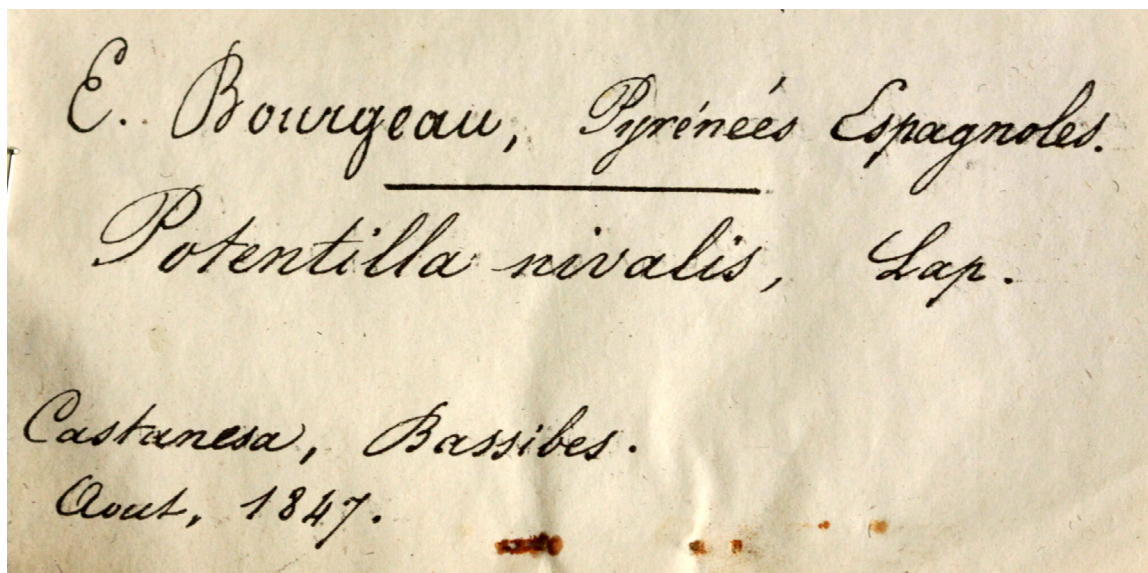 E. Bourgeau, Pyrénéés Espagnoles.
Potentilla nivalis, Lap.
Castanesa, Bassibes.
Aout, 1847.